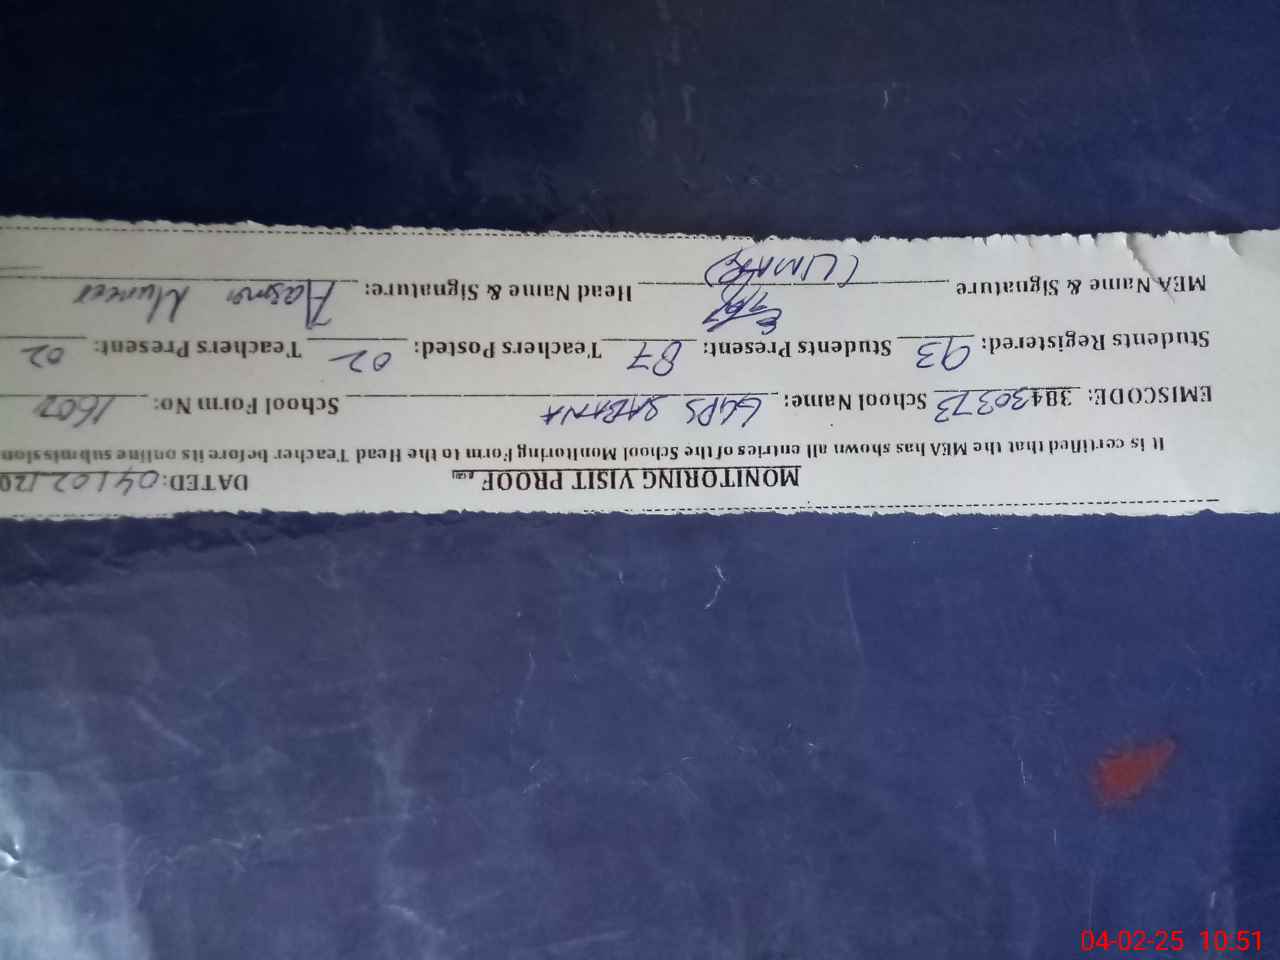 MONITORING VISIT PROOF DATED: 04/02/20
It is certified that the MEA has shown all entries of the School Monitoring Form to the Head Teacher before its online submission
EMISCODE: 38430373 School Name: GGPS SABAANA School Form No: 1607
Students Registered: 93 Students Present: 87 Teachers Posted: 02 Teachers Present: 02
MEA Name & Signature (UMAR) Head Name & Signature: Aasma Muneer
04-02-25 10:51